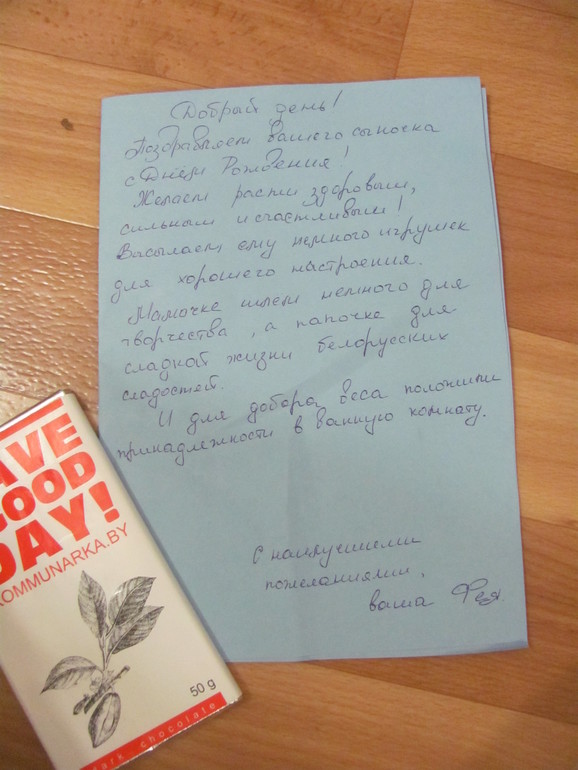 Добрый день!
Поздравляем вашего сыночка
с Днём Рождения!
Желаем расти здоровым,
сильным и счастливым!
Высылаем ему немного игрушек
для хорошего настроения.
Мамочке шлем немного для
творчества, а папочке для
сладкой жизни белорусских
сладостей.
И для добора веса положили
принадлежности в ванную комнату.
С наилучшими
пожеланиями,
ваша Фея.
AVE
GOOD
DAY!
KOMMUNARKA.BY
50 g
ark chocolate